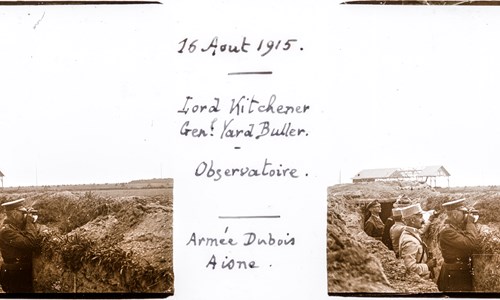 16 Aout 1915.
Lord Kitchener
Genl. Yard Buller.
Observatoire.
Armée Dubois
Aisne.